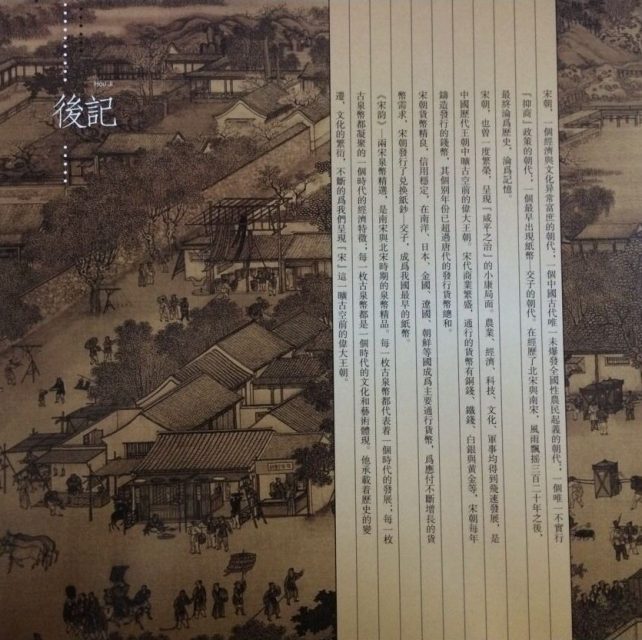 後記
宋朝，一個經濟與文化異常富庶的朝代，一個中國古代唯一未爆發全國性農民起義的朝代，一個唯一不實行
『抑商』政策的朝代，一個最早出現紙幣——交子的朝代。在經歷了北宋與南宋，風雨飄搖三百二十年之後，
最終淪爲歷史，淪爲記憶。
宋朝，也曾一度繁榮，呈現『咸平之治』的小康局面。農業、經濟、科技、文化、軍事均得到飛速發展，是
中國歷代王朝中曠古空前的偉大王朝。宋代商業繁盛，通行的貨幣有銅錢、鐵錢、白銀與黃金等，宋朝每年
鑄造發行的錢幣，其個別年份已超過唐代的發行貨幣總和。
宋朝貨幣精良，信用穩定，在南洋、日本、金國、遼國、朝鮮等國成爲主要通行貨幣，爲應付不斷增長的貨
幣需求，宋朝發行了兌換紙鈔——交子，成爲我國最早的紙幣。
《宋韵》——兩宋泉幣精選，是南宋與北宋時期的泉幣精品。每一枚古泉幣都代表着一個時代的發展；每一枚
古泉幣都凝聚的一個時代的經濟特徵；每一枚古泉幣都是一個時代的文化和藝術體現。他承載着歷史的變
遷、文化的繁衍，不斷的爲我們呈現『宋』這一曠古空前的偉大王朝。